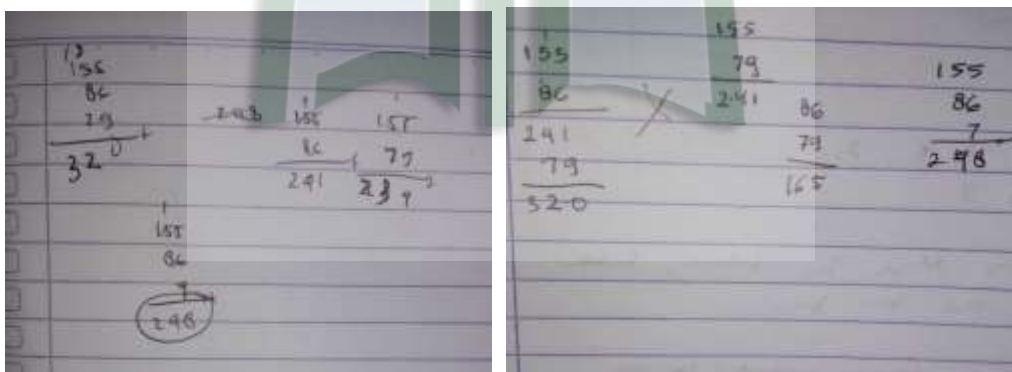 155
86
79
320
248
155
86
241
155
79
155
86
7
248
155
86
241
79
320
155
79
241
86
79
165
155
86
7
248